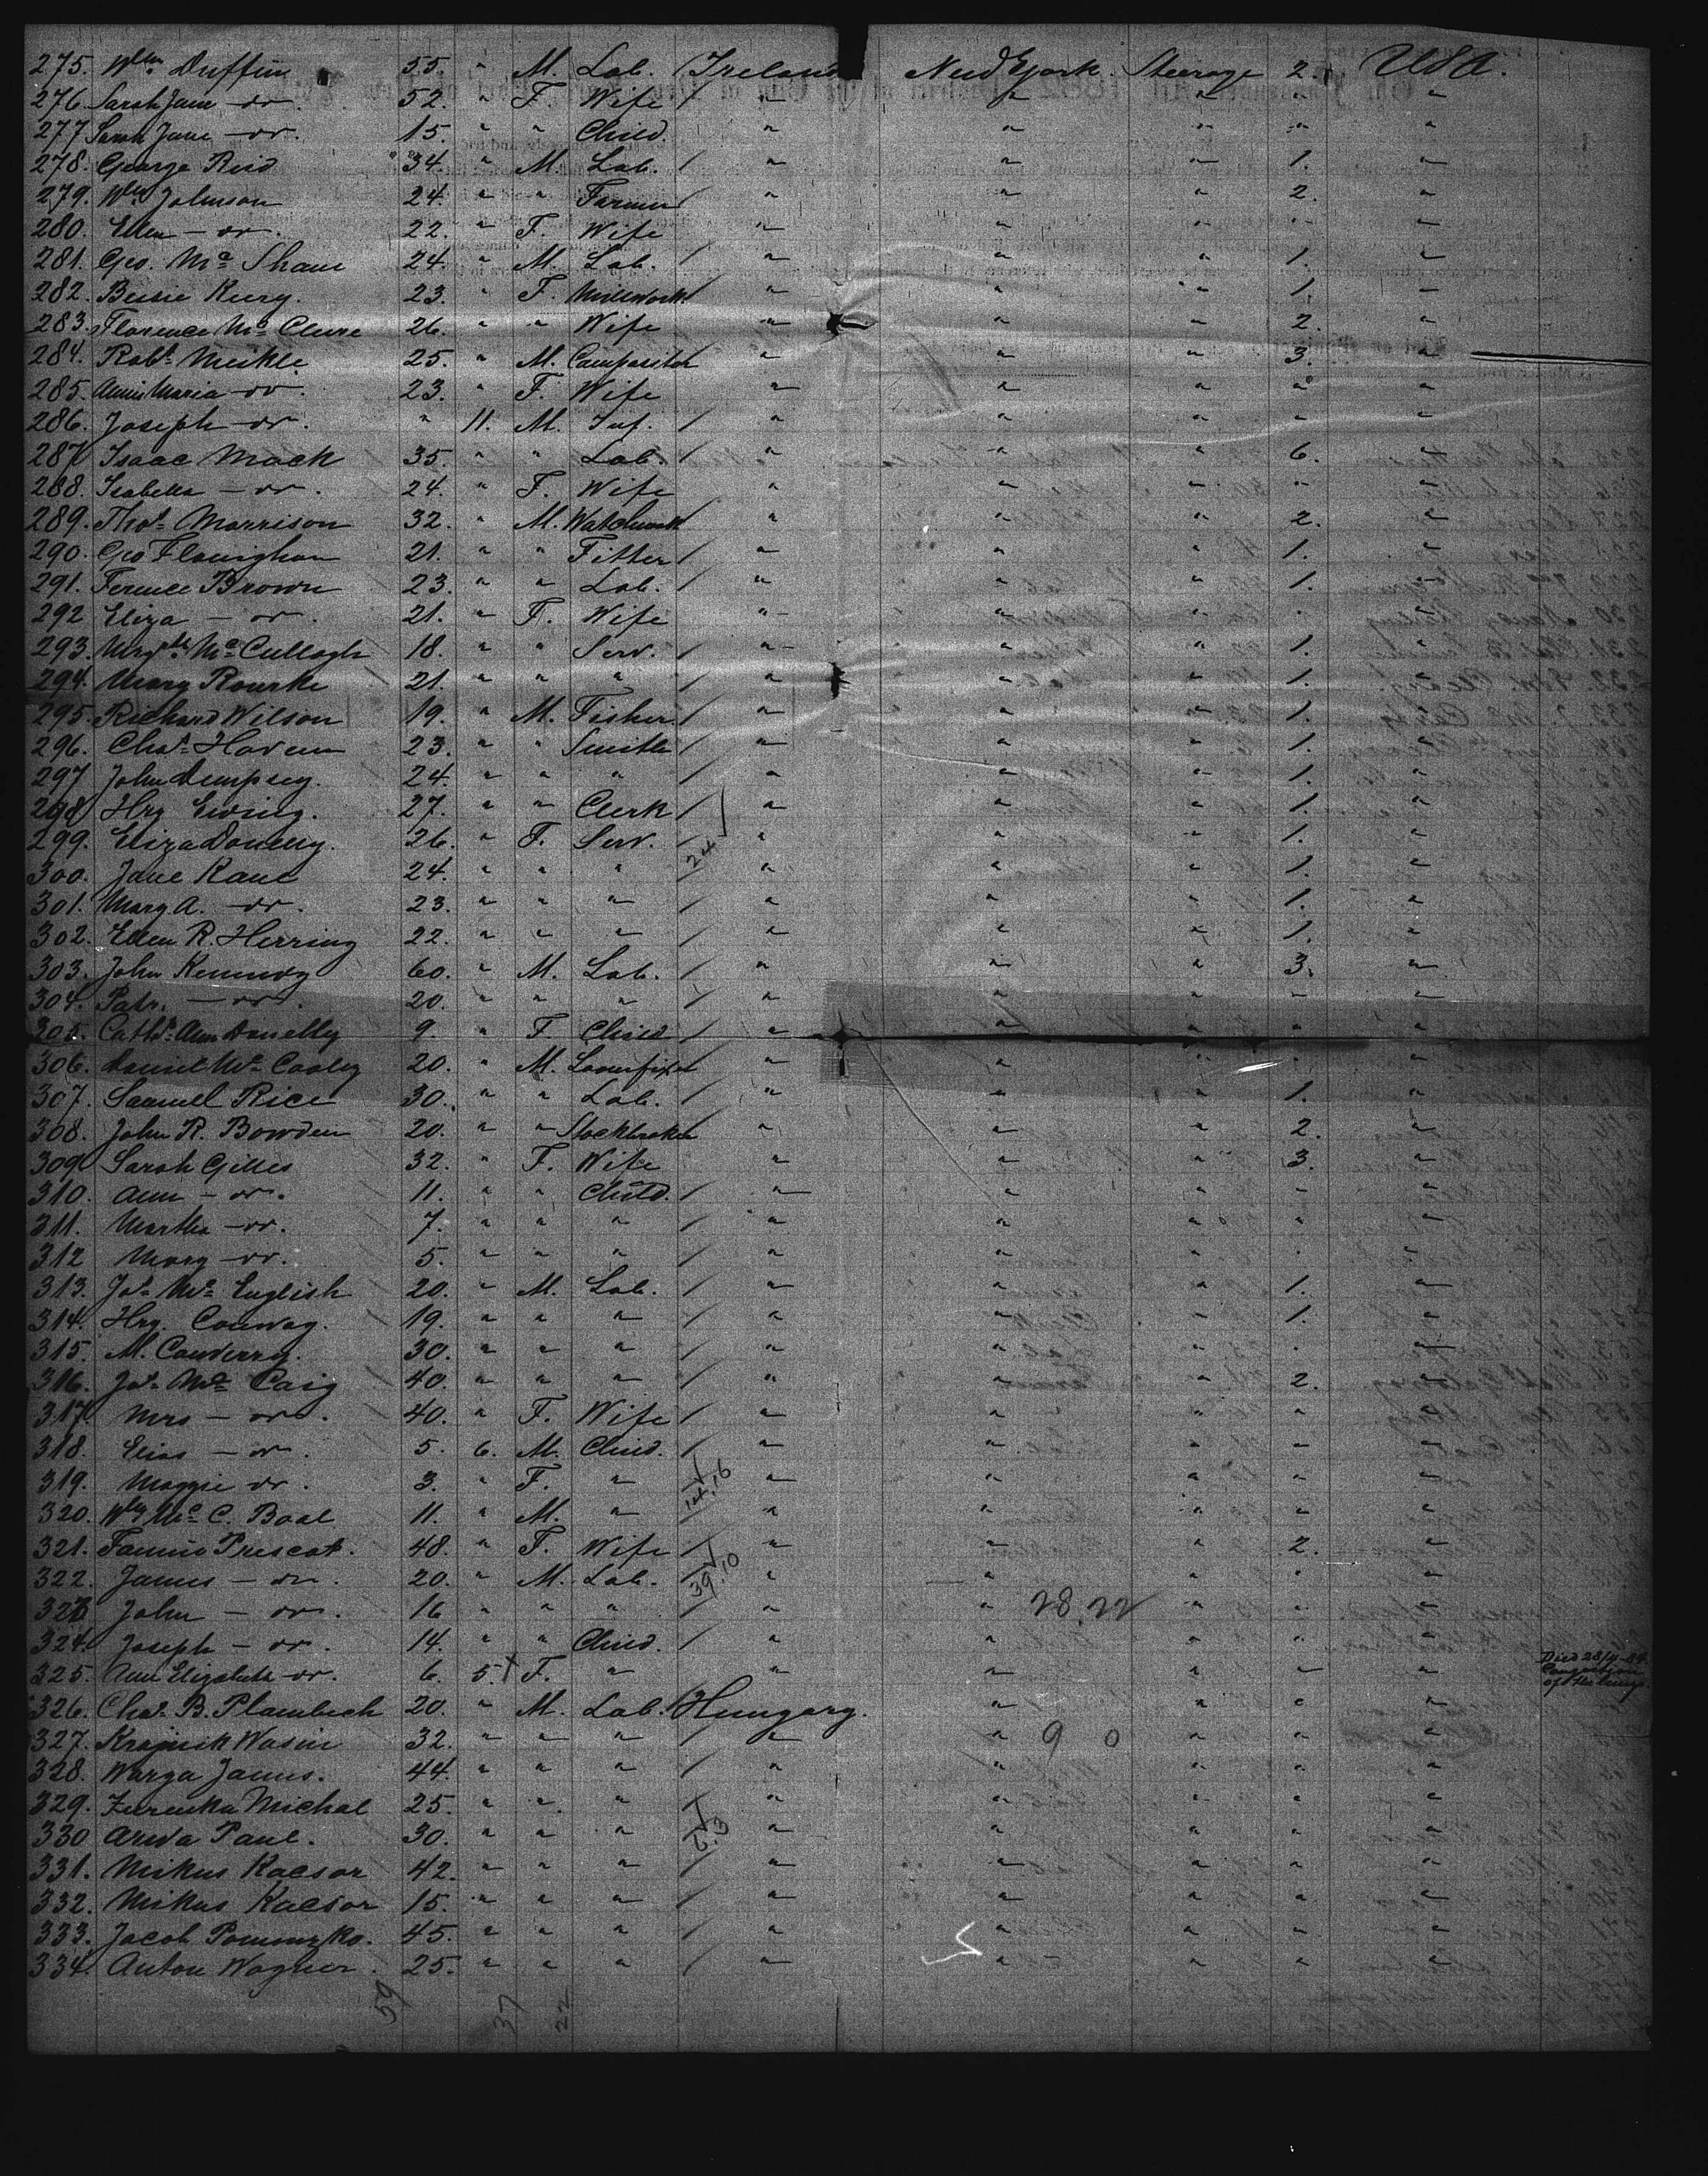 275. Wllm Duffin 55. " M. Lab. / Ireland New York. Steerage 2. USA.
276. Sarah Jane - do. 52. " F. Wife / " " " " "
277 Sarah Jane - do. 15. " " Child. " " " " "
278. George Reid 34. " M. Lab. / " " " 1. "
279. Wm Johnson 24. " " Farmer / " " " 2. "
280. Ellen - do. 22. " F. Wife " " " " "
281. Geo. Mc Shane 24. " M. Lab. / " " " 1. "
282. Bessie Keery. 23. " F. Millwork. / " " " 1. "
283. Florence Mc Clure 26. " " Wife " " " 2. "
284. Robt. Meikle. 25. " M. Compositor " " " 3. "
285. Annie Maria - do. 23. " F. Wife " " " " "
286. Joseph - do. " 11. M. Inf. / " " " " "
287 Isaac Mack 35. " " Lab. / " " " 6. "
288. Isabella - do. 24. " F. Wife " " " " "
289. Thos. Morrison 32. " M. Watchmak / " " " 2. "
290. Geo Flanighan 21. " " Fitter / " " " 1. "
291. Terence Brown 23. " " Lab. / " " " 1. "
292 Eliza - do. 21. " F. Wife " " " " "
293. Mrgt. Mc Cullogh 18. " " Serv. / " " " 1. "
294. Mary Rourke 21. " " " / " " " 1. "
295. Richard Wilson 19. " M. Fisher. / " " " 1. "
296. Chas. Haven 23. " " Smith / " " " 1. "
297 John Dempsey. 24. " " " / " " " 1. "
298 Hry Ewing. 27. " " Clerk / " " " 1. "
299. Eliza Donelly. 26. " F. Serv. / 24 " " " 1. "
300. Jane Kane 24. " " " " " " 1. "
301. Mary A. - do. 23. " " " / " " " 1. "
302. Ellen R. Herring 22. " " " / " " " 1. "
303. John Kennedy 60. " M. Lab. / " " " 3. "
304. Patr. - do. 20. " " " / " " " " "
305. Cathr. Ann Donelly 9. " F. Child / " " " " "
306. Daniel Mc Cooley 20. " M. Loomfixer " " " " "
307. Samuel Rice 30. " " Lab. / " " " 1. "
308. John R. Bowden 20. " " Stockbroker " " " 2. "
309 Sarah Gilles 32. " F. Wife " " " 3. "
310. Ann - do. 11. " " Child. / " " " " "
311. Martha - do. 7. " " " / " " " " "
312 Mary - do. 5. " " " / " " " " "
313. Jas. Mc English 20. " M. Lab. / " " " 1. "
314. Hry. Conway. 19. " " " / " " " 1. "
315. M. Converry. 30. " " " / " " " " "
316. Jas. Mc Caig 40. " " " / " " " 2. "
317 Mrs - do. 40. " F. Wife / " " " " "
318. Elias - do. 5. 6. M. Child. / " " " " "
319. Maggie do. 3. " F. " " " " " "
320. Wm Mc C. Boal 11. " M. " / " " " " "
321. Fannie Prescot. 48. " F. Wife / " " " 2. "
322. James - do. 20. " M. Lab. / 39.10 " " " " "
323 John - do. 16 " " " / " " 28.22 " " "
324. Joseph - do. 14. " " Child. / " " " " "
325. Ann Elizabeth - do. 6. 5. F. " " " " " " Died 28/4-84. Congestion of the lungs.
326. Chas. B. Plambech 20. " M. Lab. / Hungary. " " " "
327. Krajnik Wasin 32. " " " / " " 9 0 " " "
328. Warga Janus. 44. " " " / " " " " "
329. Michal 25. " " " / " " " " "
330 Arwa Paul. 30. " " " 6.3 " " " " "
331. Mikus Kacsor 42. " " " / " " " " "
332. Mikus Kacsor 15. " " " / " " " " "
333. Jacob 45. " " " / " " " " "
334. Anton Wagner. 25. " " " / " " " " "
59 37 22